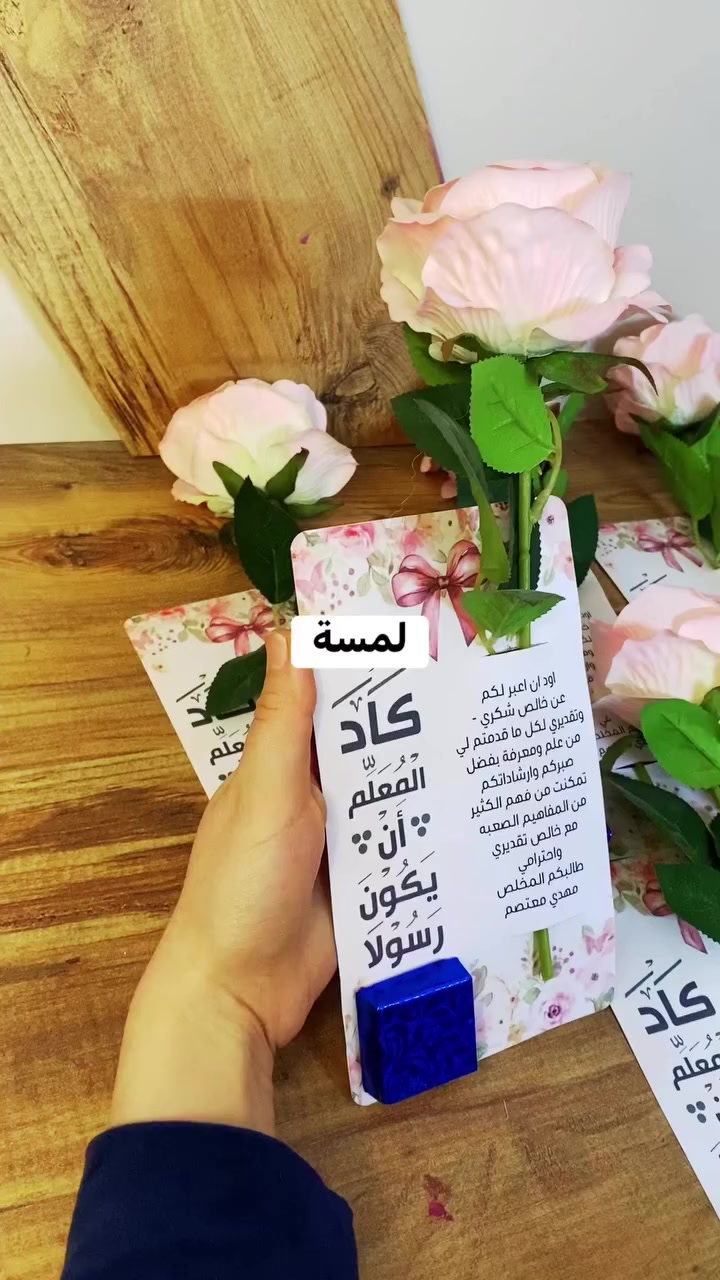 لمسة
كَادَ
المُعَلِّم
أَنْ
يَكُونَ
رَسُولَا
اود ان اعبر لكم
عن خالص شكري -
وتقديري لكل ما قدمتم لي
من علم ومعرفة بفضل
صبركم وارشاداتكم
تمكنت من فهم الكثير
من المفاهيم الصعبه
مع خالص تقديري
واحترامي
طالبكم المخلص
مهدي معتصم
كَادَ
كَادَ